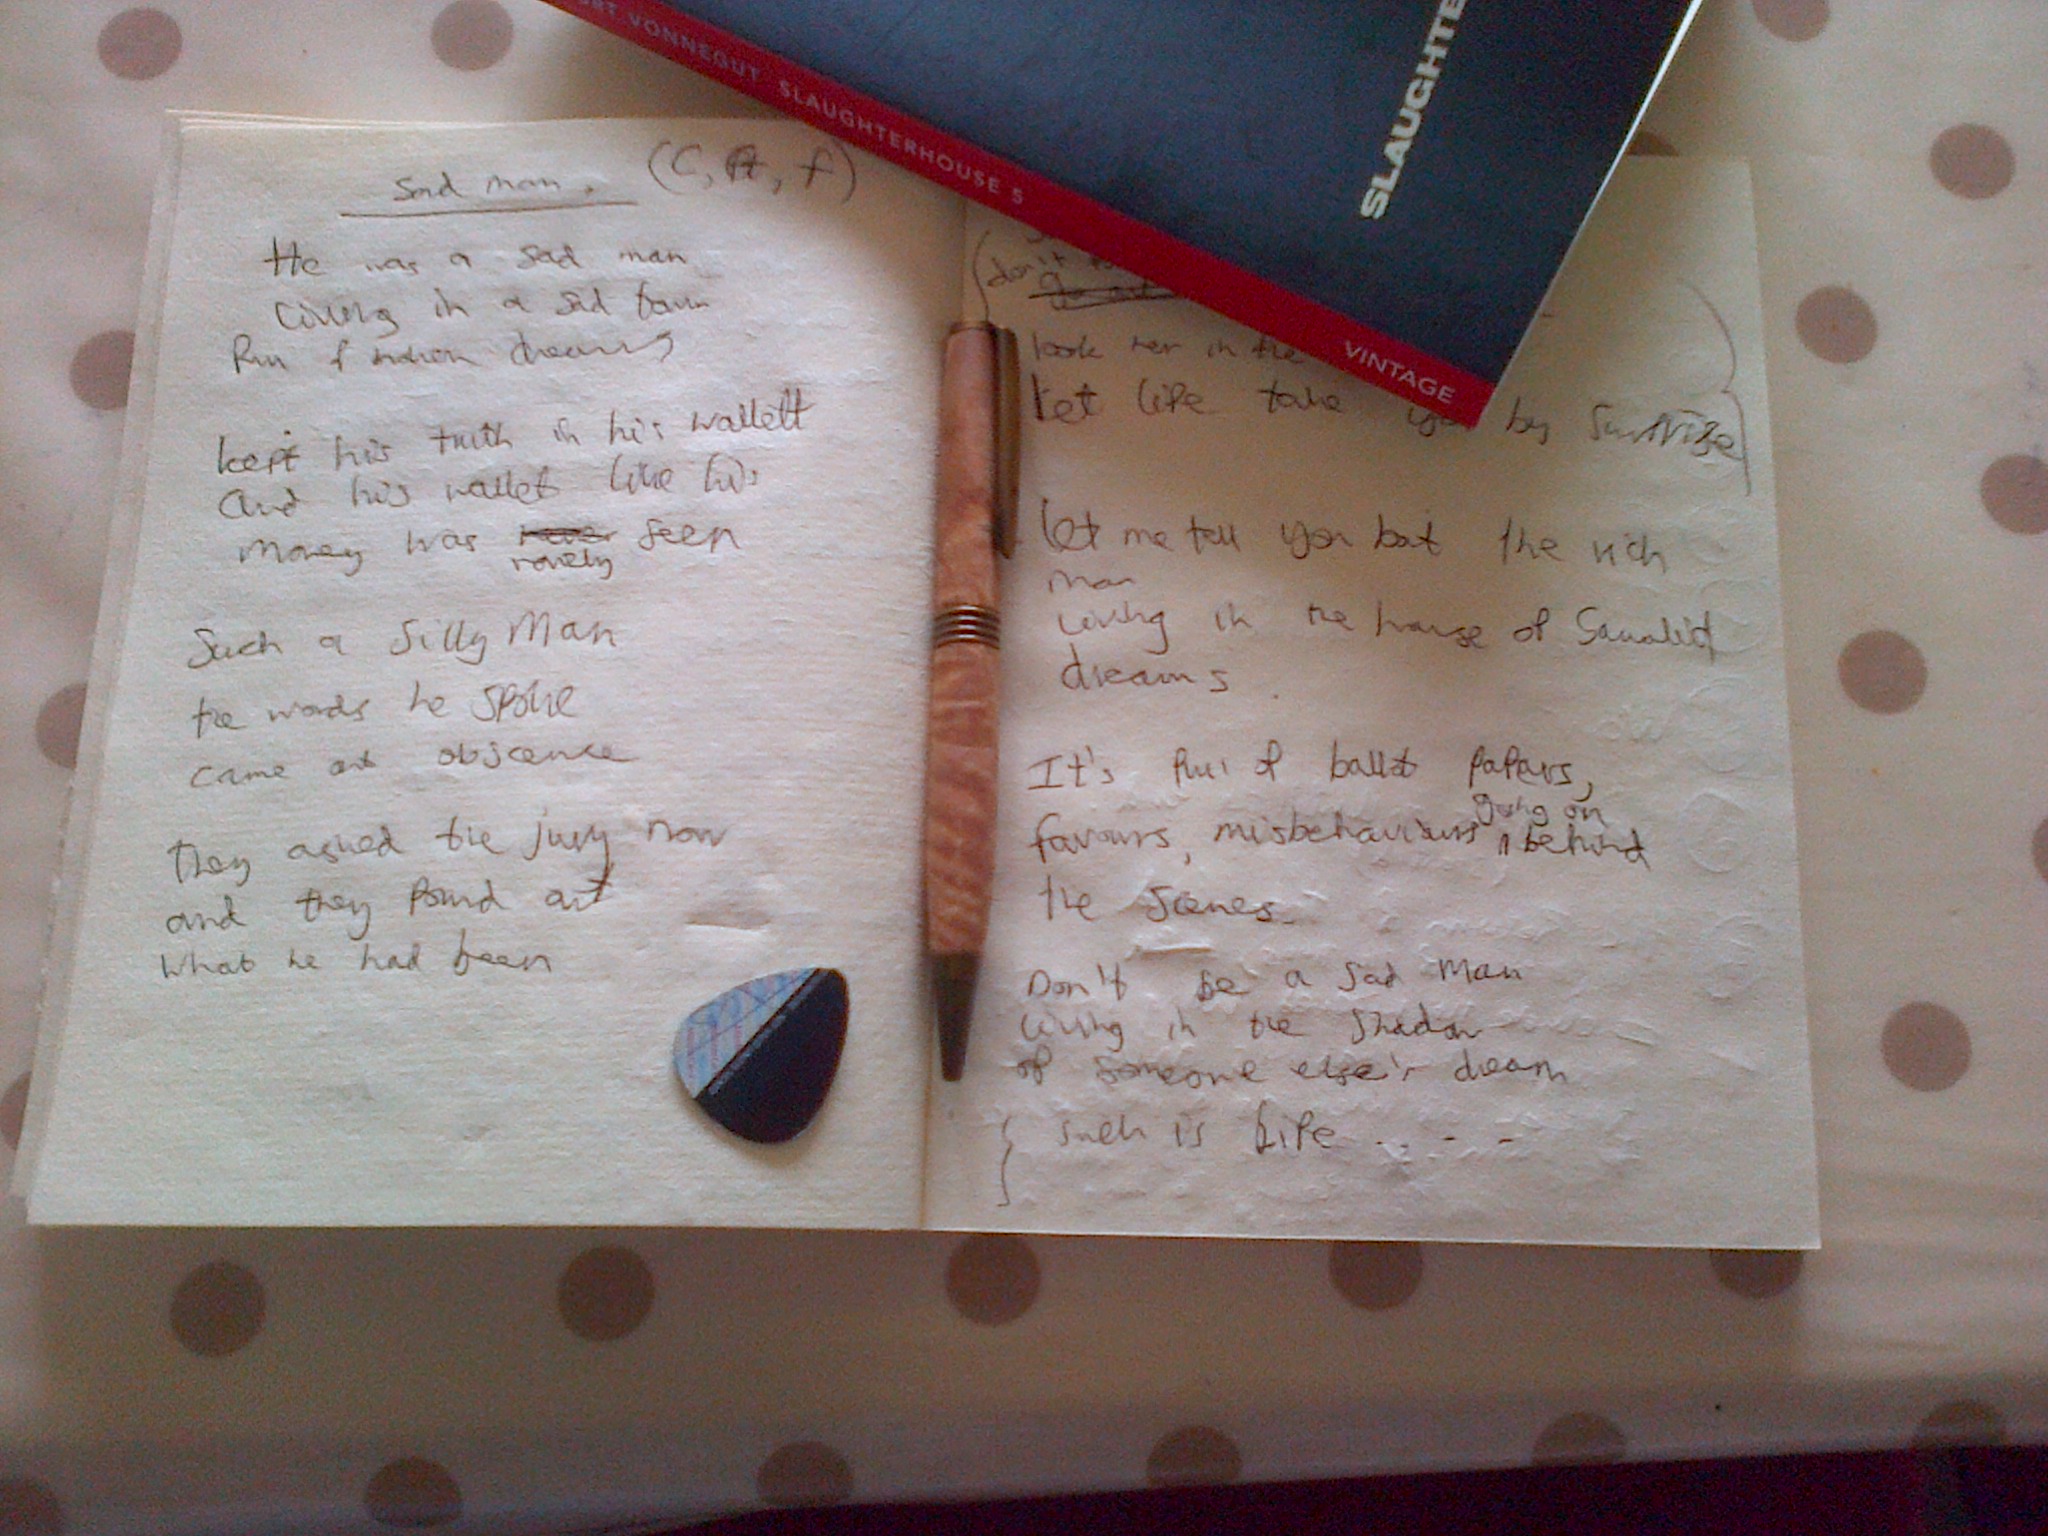 Sad man. (C, A, f)
He was a sad man
Living in a sad town
Full of dreams
kept his truth in his wallett
and his wallet like his
money was never seen
rarely
Such a Silly Man
the words he spoke
came out obscence
they asked the jury now
and they found out
what he had been
don't
look her in the
let life take you by surprize
let me tell you bout the rich
man
Living in the house of
dreams.
It's full of ballot papers,
going on
favours, misbehaviours behind
the scenes.
Don't be a sad man
Living in the shadow
of someone else's dream
such is Life . . - - -
KURT VONNEGUT SLAUGHTERHOUSE 5
VINTAGE
SLAUGHTE